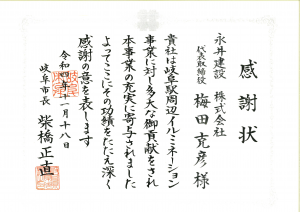 感謝状
永井建設 株式会社
代表取締役 梅田克彦様
貴社は岐阜駅周辺イルミネーション
事業に対し多大な御貢献をされ
本事業の充実に寄与されました
よってここにその功績をたたえ深く
感謝の意を表します
令和四年十一月十八日
岐阜市長 柴橋正直